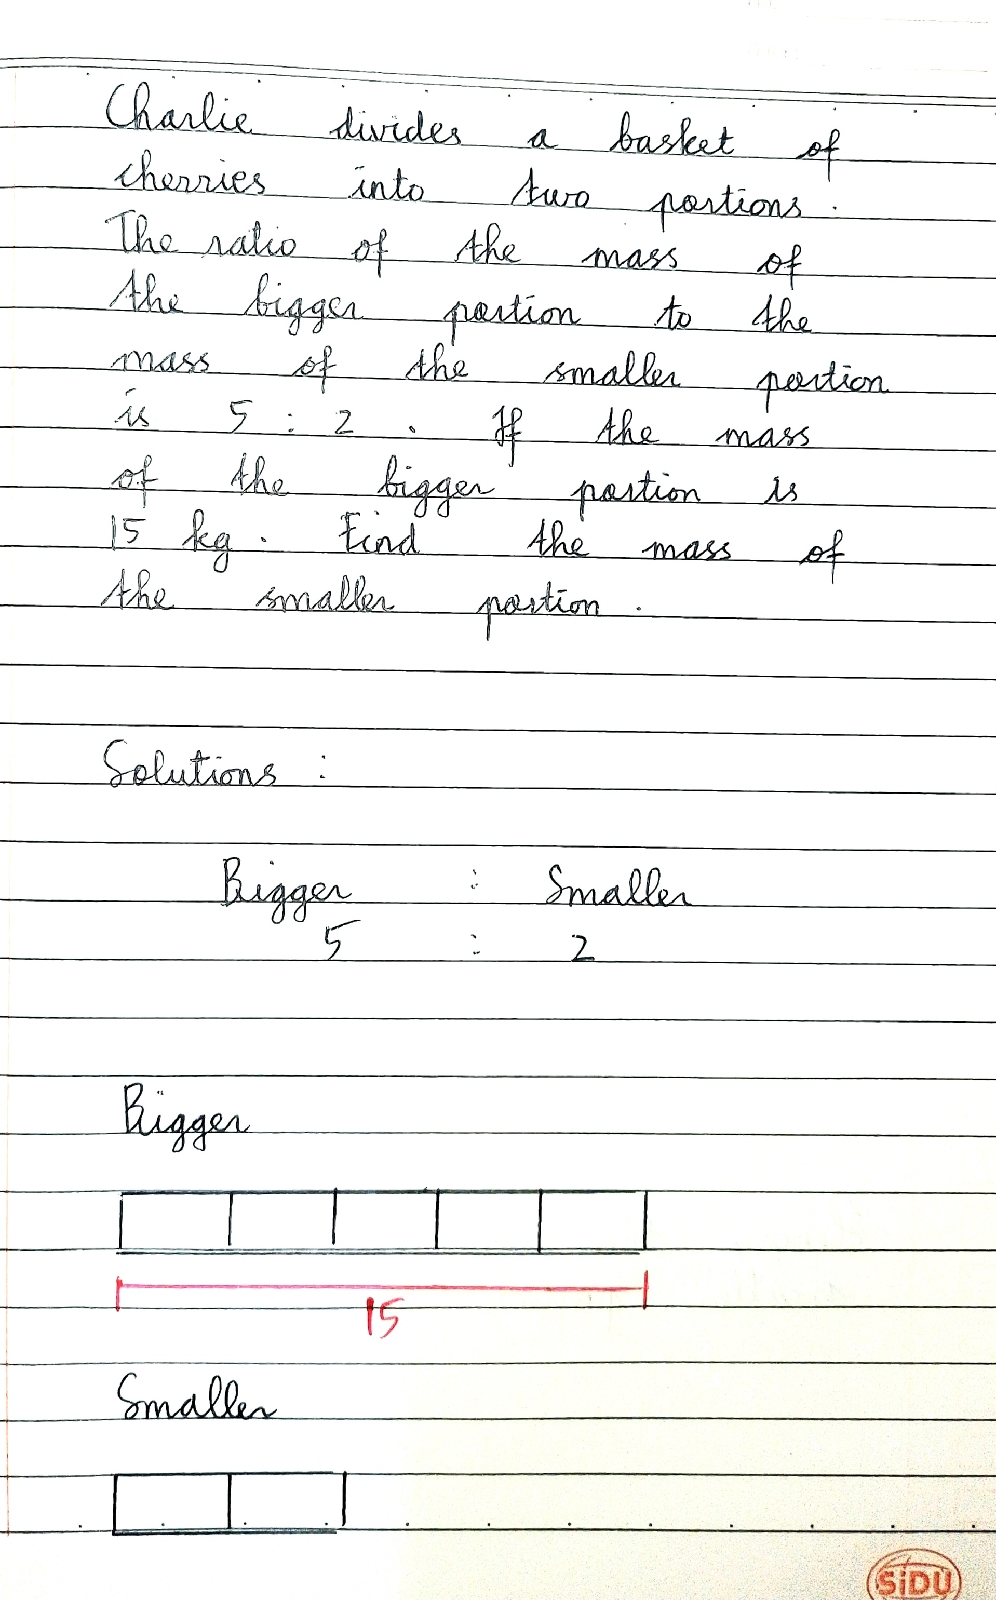 Charlie divides a basket of
cherries into two portions.
The ratio of the mass of
the bigger portion to the
mass of the smaller portion
is 5 : 2 . If the mass
of the bigger portion is
15 kg . Find the mass of
the smaller portion .
Solutions :
Bigger : Smaller
5 : 2
Bigger
15
Smaller
SiDU